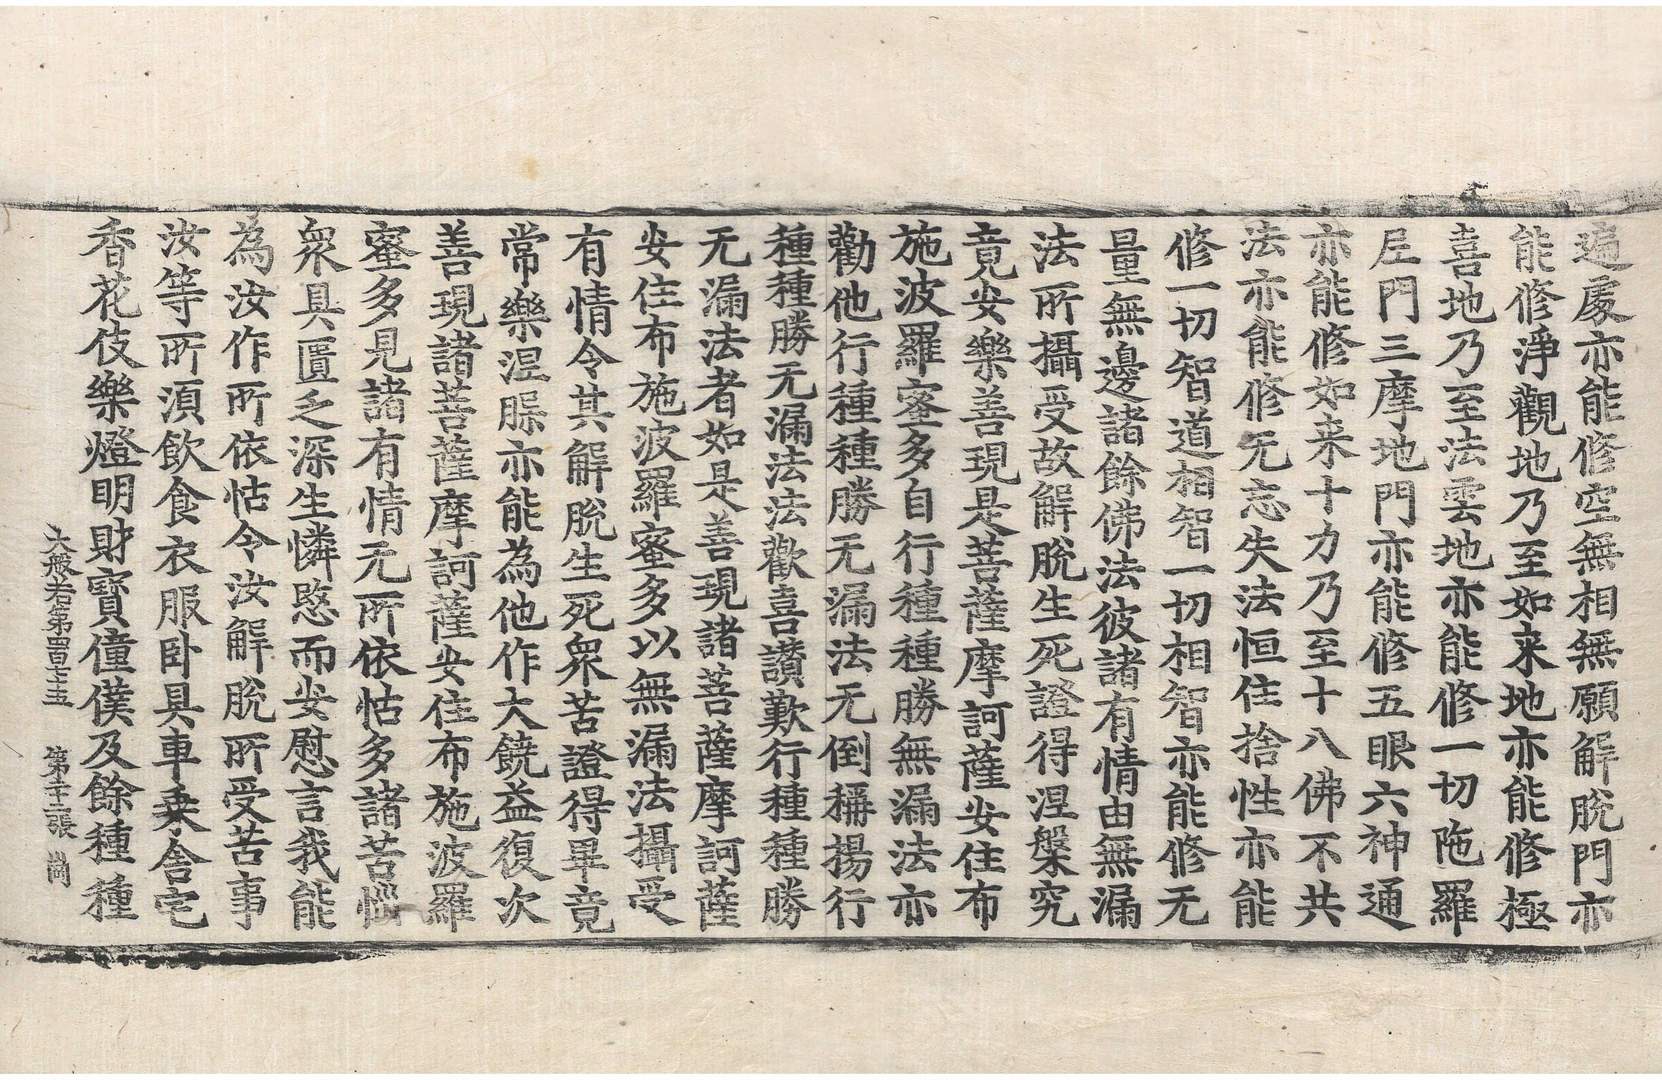 遍處亦能修空無相無願解脫門亦
能修淨觀地乃至如来地亦能修極
喜地乃至法雲地亦能修一切陁羅
𡰱門三摩地門亦能修五眼六神通
亦能修如来十力乃至十八佛不共
法亦能修无忘失法恒住捨性亦能
修一切智道相智一切相智亦能修无
量無邊諸餘佛法彼諸有情由無漏
法所攝受故解脫生死證得涅槃究
竟安樂善現是菩薩摩訶薩安住布
施波羅蜜多自行種種勝無漏法亦
勸他行種種勝无漏法无倒稱揚行
種種勝无漏法法歡喜讚歎行種種勝
无漏法者如是善現諸菩薩摩訶薩
安住布施波羅蜜多以無漏法攝受
有情令其解脫生死衆苦證得畢竟
常樂涅槃亦能為他作大饒益復次
善現諸菩薩摩訶薩安住布施波羅
蜜多見諸有情无所依怙多諸苦惱
衆具匱乏深生憐愍而安慰言我能
為汝作所依怙令汝解脫所受苦事
汝等所須飲食衣服卧具車乗舎宅
香花伎樂燈明財寶僮僕及餘種種
大般若第四百七十五 第二十二張 崗